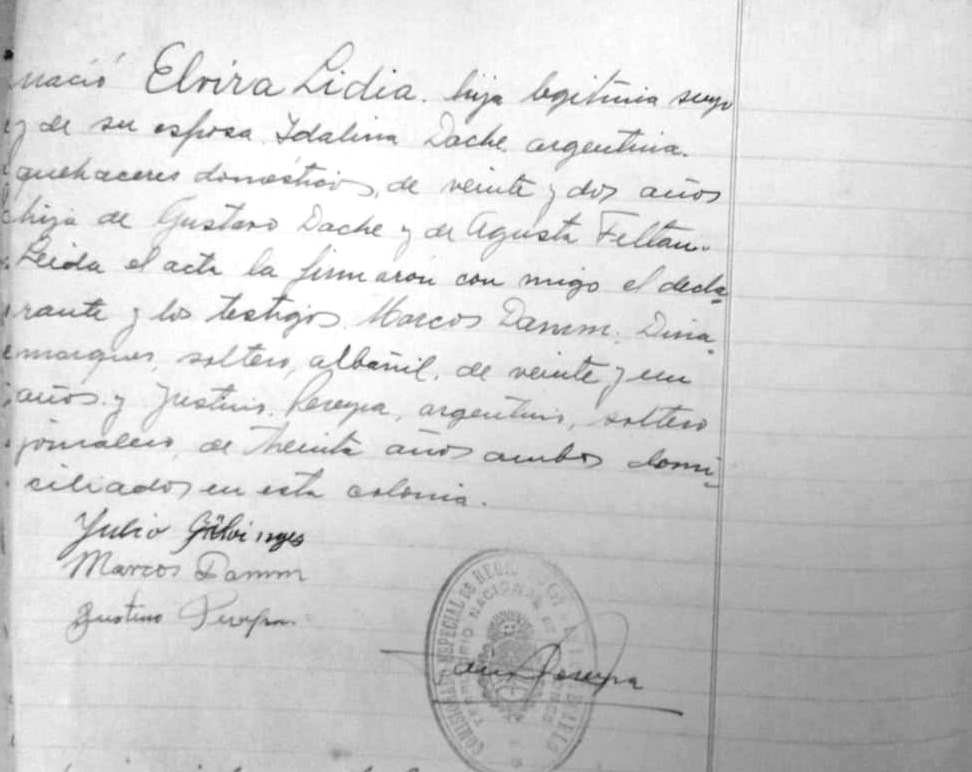 nació Elvira Lidia. hija legitima suya
y de su esposa Idalina Dache argentina.
quehaceres domésticos, de veinte y dos años
hija de Gustavo Dache y de Agusta Feltan.
Leida el acta la firmaron con migo el decla-
rante y los testigos Marcos Damm, Dina-
marques, soltero, albañil, de veinte y un
años y Justino Pereyra, argentino, soltero
jornalero, de treinta años ambos domi-
siliados en esta colonia.
Julio
Marcos Damm
Justino Pereyra
ESPECIAL DE
TERRITORIO NACIONAL DE
Pereyra